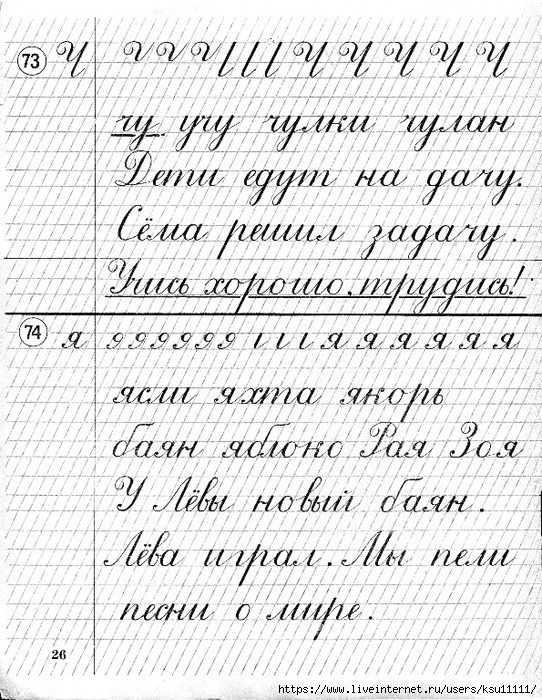 73 У У У У У У У
чу учу чулки чулан
Дети едут на дачу.
Сёма решил задачу.
Учись хорошо, трудись!
74 я я я я я я я
ясли яхта якорь
баян яблоко Рая Зоя
У Лёвы новый баян.
Лёва играл. Мы пели
песни о мире.
26
https://www.liveinternet.ru/users/ksu11111/